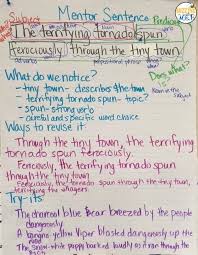 Subject
Mentor Sentence
Predicate
The terrifying tornado spun
ferociously through the tiny town
adverb
prepositional phrase
Does what?
What do we notice?
- tiny town - describes the town
- terrifying tornado spun - topic?
- spun - strong verb
- careful and specific word choice
Ways to revise it
Through the tiny town, the terrifying
tornado spun ferociously.
Ferociously, the terrifying tornado spun
through the tiny town
Ferociously, the tornado spun through the tiny town,
terrifying the villagers
Try-its
The charcoal blue Bear breezed by the people
dangerously
A banana yellow Viper blasted dangerously up the
road
The snow-white puppy barked loudly as it ran through the